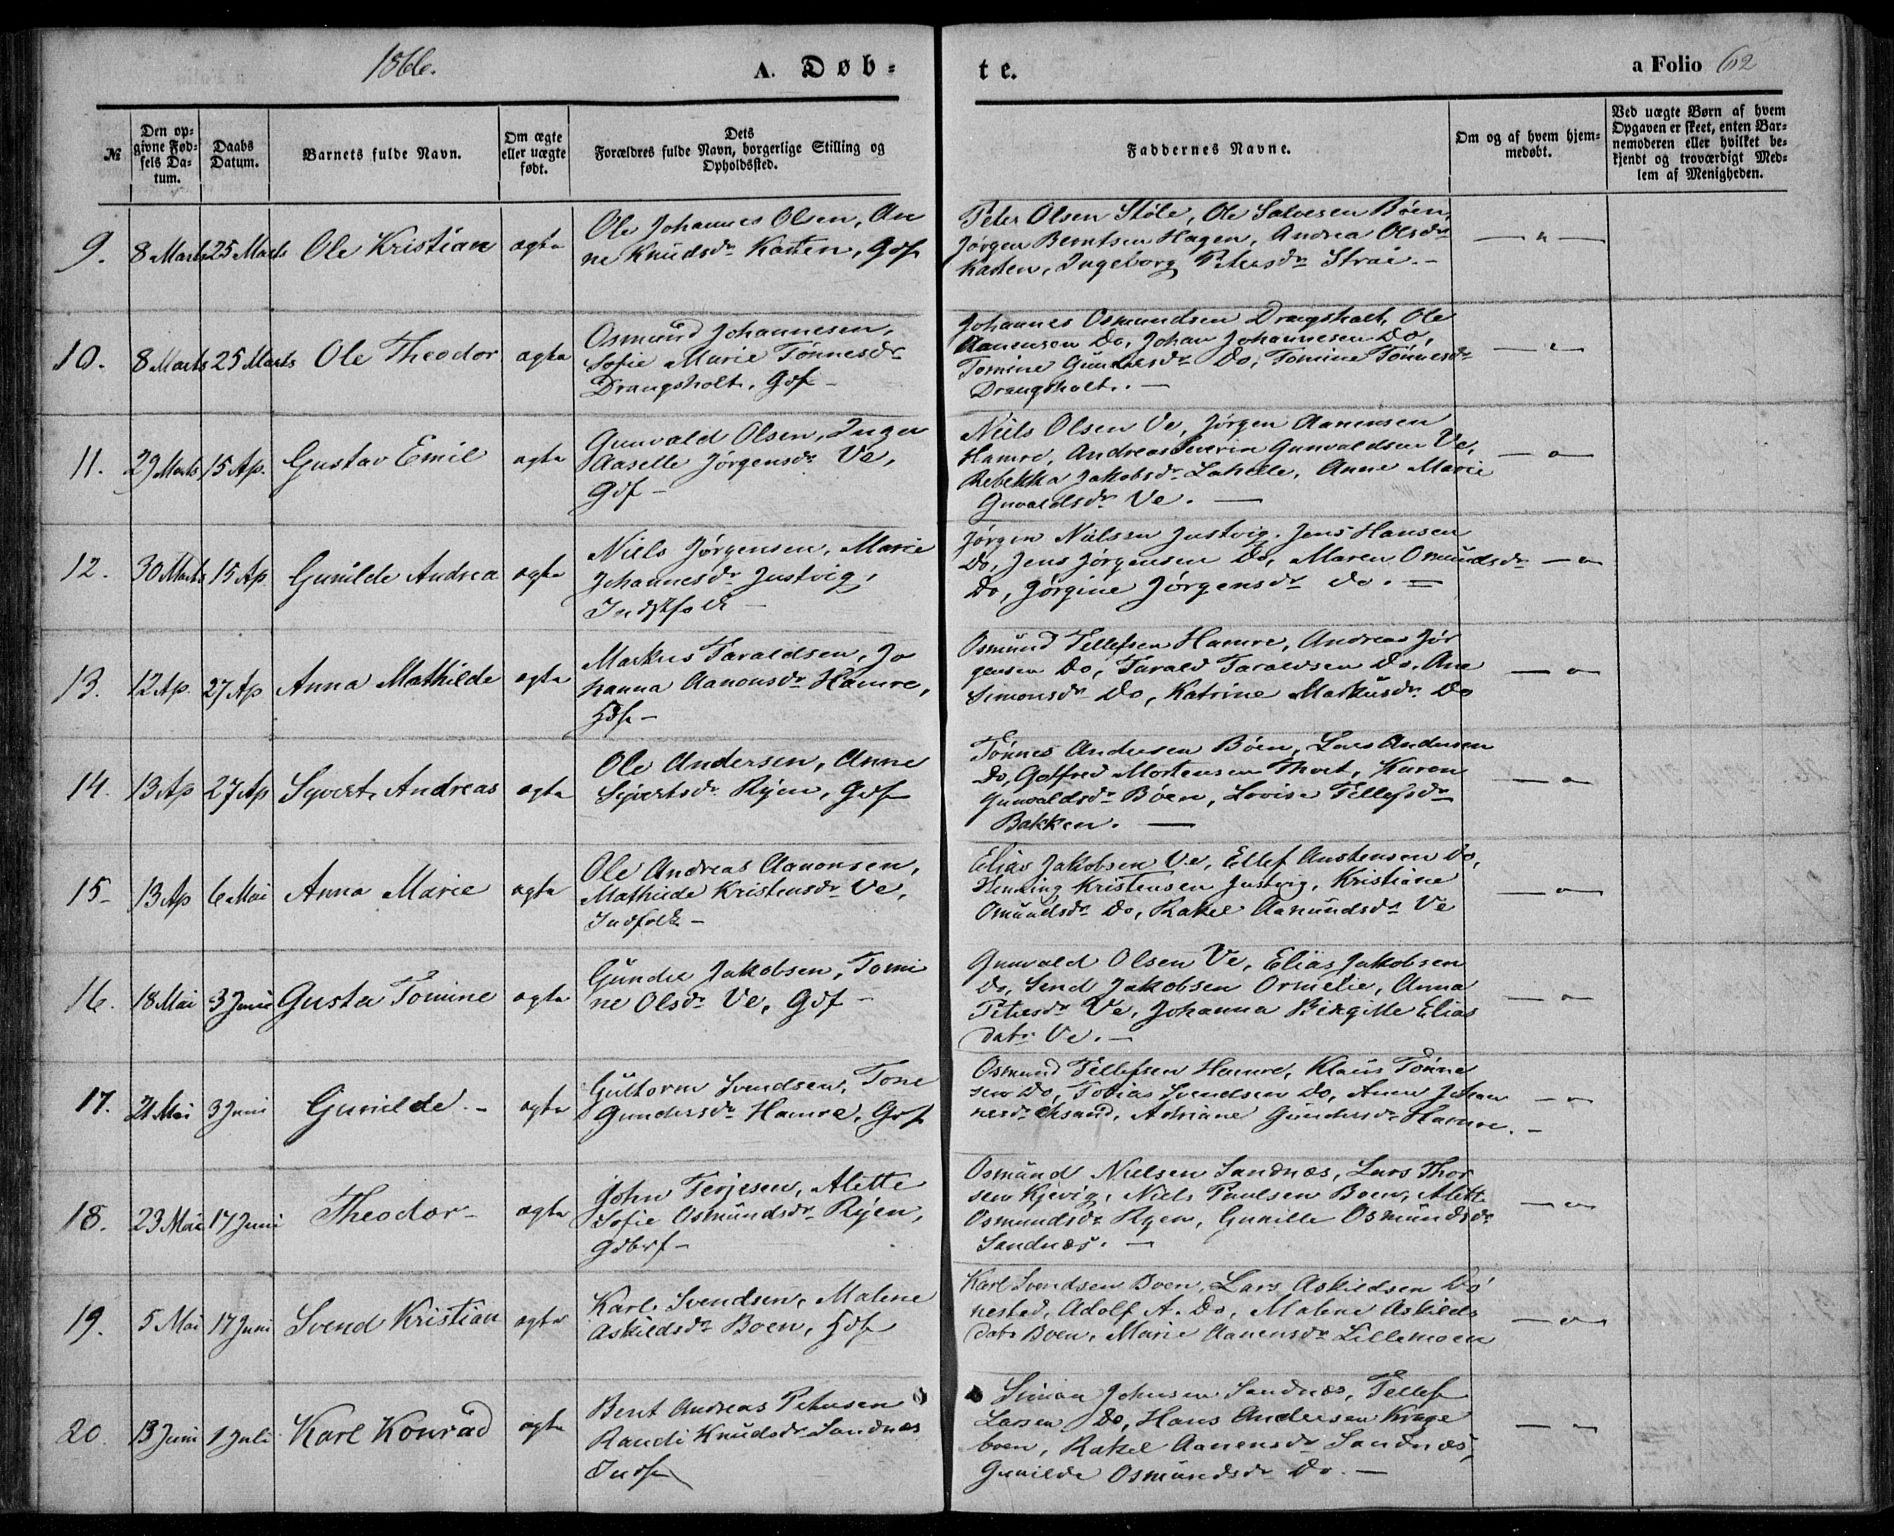 1866.
A. Døb-
te.
a Folio 62
№
Den op-
givne Fød-
sels Da-
tum.
Daabs
Datum.
Barnets fulde Navn.
Om ægte
eller uægte
født.
Dets
Forældres fulde Navn, borgerlige Stilling og
Opholdssted.
Faddernes Navne.
Om og af hvem hjem-
medøbt.
Ved uægte Børn af hvem
Opgaven er skeet, enten Bar-
nemoderen eller hvilket be-
kjendt og troværdigt Med-
lem af Menigheden.
9. 8 Marts 25 Marts Ole Kristian ægte
Ole Johannes Olsen, An
ne Knudsdr Kosten, Gdf
Peter Olsen Støle, Ole Salvesen Bøen,
Jørgen Berntsen Hagen, Andrea Olsdr
Kosten, Ingeborg Petersdr Straie. –
10. 8 Marts 25 Marts Ole Theodor ægte
Osmund Johannesen,
Sofie Marie Tønnesdr
Drangsholt, Gdf –
Johannes Osmundsen Drangsholt, Ole
Aanensen Do, Johan Johannesen Do,
Tomine Gundersdr Do, Tomine Tønnesdr
Drangsholt. –
11. 29 Marts 15 Ap. Gustav Emil ægte
Gunvald Olsen, Inger
Aaselle Jørgensdr Ve,
Gdf –
Niels Olsen Ve, Jørgen Aanensen
Hamre, Andreas Severin Gunvaldsen Ve,
Rebekka Jakobsdr Lahelle, Anne Marie
Gnvaldsdr Ve. –
12. 30 Marts 15 Ap Gunilde Andrea ægte
Niels Jørgensen, Marie
Johannesdr Justvig,
Indstfolk –
Jørgen Nielsen Justvig, Jens Hansen
Do, Jens Jørgensen Do, Maren Osmundsdr
Do, Jørgine Jørgensdr do. =
13. 12 Ap. 27 Ap Anna Mathilde ægte
Markus Taraldsen, Jo
hanna Aanonsdr Hamre,
Hdf –
Osmund Tellefsen Hamre, Andreas Jør
gensen Do, Tarald Taraldsen Do, Ane
Simonsdr Do, Katrine Markusdr Do
14. 13 Ap 27 Ap Syvert Andreas ægte
Ole Andersen, Anne
Syvertsdr Ryen, Gdf
Tønnes Andersen Bøen, Lars Andersen
Do, Gotfred Mortensen Thvet, Karen
Gunvaldsdr Bøen, Lovise Tellefsdr
Bakken. –
15– 13 Ap 6 Mai Anna Marie ægte
Ole Andreas Aanonsen,
Mathilde Kristensdr Ve,
Indfolk –
Elias Jakobsen Ve, Ellef Austensen Do,
Henning Kristensen Justvig, Kristiane
Osmundsdr Do, Rakel Aamundsdr Ve
16. 18 Mai 3 Juni Gusta Tomine ægte
Gunder Jakobsen, Tomi
ne Olsdr Ve, Gdf –
Gunvald Olsen Ve, Elias Jakobsen
Do, Send Jakobsen Ormelie, Anna
Petersdr Ve, Johanna Birgitte Elias
datr Ve. –
17. 21 Mai 3 Juni Gunilde. – ægte
Guttorm Svendsen, Tone
Gundersdr Hamre, Gdf
Osmund Tellefsen Hamre, Klaus Tønne
sen Do, Tobias Svendsen Do, Anne Johan
nesdr Chsand, Adriane Gundersdr Hamre. –
18. 23 Mai 17 Juni Theodor – ægte
John Terjesen, Alette
Sofie Osmundsdr Ryen,
Gdbrf –
Osmund Nielsen Sandnæs, Lars Thor
sen Kjevig, Niels Paulsen Boen, Alette
Osmundsdr Ryen, Gunille Osmundsdr
Sandnæs. –
19. 5 Mai 17 Juni Svend Kristian ægte
Karl Svendsen, Malene
Askildsdr Boen, Hdf
Karl Svendsen Boen, Lars Askildsen Dö
nested, Adolf A. Do, Malene Askilds
datr Boen, Marie Aanensdr Lillemoen
20. 13 Juni 1 Juli Karl Konrad ægte
Berit Andreas Petersen
Randi Knudsdr Sandnæs
Indf
Simon Johnsen Sandnæs, Tellef
Larsen Do, Hans Andersen Krage
boen, Rakel Aanensdr Sandnæs,
Gunilde Osmundsdr Do. –